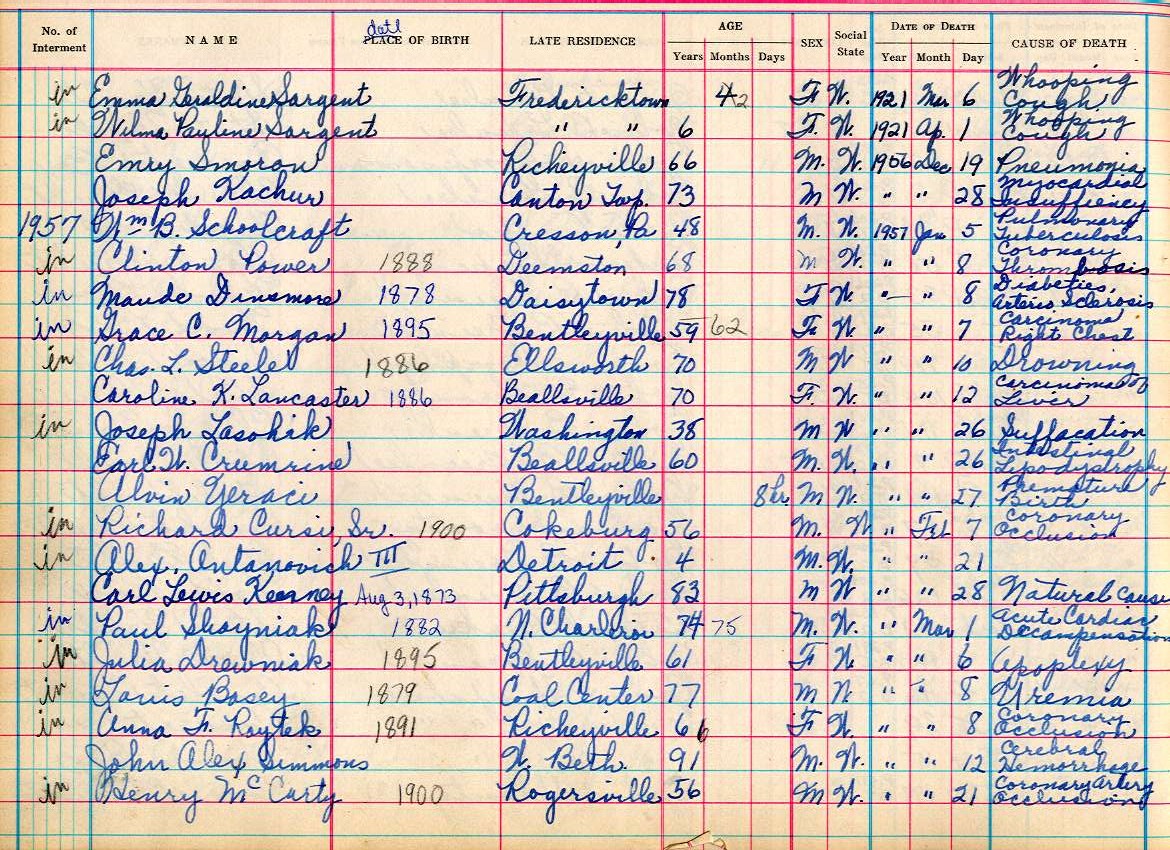 No. of Interment NAME date PLACE OF BIRTH LATE RESIDENCE AGE Years Months Days SEX Social State DATE OF DEATH Year Month Day CAUSE OF DEATH
in Emma Geraldine Sargent Fredericktown 42 F W. 1921 Mar 6 Whooping Cough
in Wilma Pauline Sargent " " 6 F. W. 1921 Ap. 1 Whooping Cough
Emry Smoron Richeyville 66 M. W. 1956 Dec 19 Pneumonia
Joseph Kachur Canton Twp. 73 M W. " " 28 Myocardial Insufficiency
1957 Wm B. Schoolcraft Cresson, Pa 48 M. W. 1957 Jan 5 Pulmonary Tuberculosis
in Clinton Power 1888 Deemston 68 M W. " " 8 Coronary Thrombosis
in Maude Dinsmore 1878 Daisytown 78 F W. " " 8 Diabeties, Arterio Sclerosis
in Grace C. Morgan 1895 Bentleyville 59 62 F. W. " " 7 Carcinoma Right Chest
in Chas. L. Steele 1886 Ellsworth 70 M W " " 10 Drowning
Caroline K. Lancaster 1886 Beallsville 70 F. W. " " 12 Carcinoma of Liver
in Joseph Lasohik Washington 38 M W " " 26 Suffacation
Earl W. Crumrine Beallsville 60 M. W. " " 26 Intestinal Lipodystrophy
Alvin Geraci Bentleyville 8hr M W. " " 27 Premature Birth
in Richard Cursi, Sr. 1900 Cokeburg 56 M. W " Feb 7 Coronary Occlusion
in Alex. Antanovich III Detroit 4 M. W. " " 21
Carl Lewis Kearney Aug 3, 1873 Pittsburgh 83 M W " " 28 Natural Cause
in Paul Shoyniak 1882 N. Charleroi 74 75 M. W. " Mar 1 Acute Cardiac Decompensation
in Julia Drewniak 1895 Bentleyville 61 F W " " 6 Apoplexy
in Louis Bosey 1879 Coal Center 77 M W " " 8 Uremia
in Anna F. Raytek 1891 Richeyville 66 F W. " " 8 Coronary Occlusion
John Alex Simmons W. Beth. 91 M. W. " " 12 Cerebral Hemorrhage
in Henry McCarty 1900 Rogersville 56 M W. " " 21 Coronary Artery Occlusion